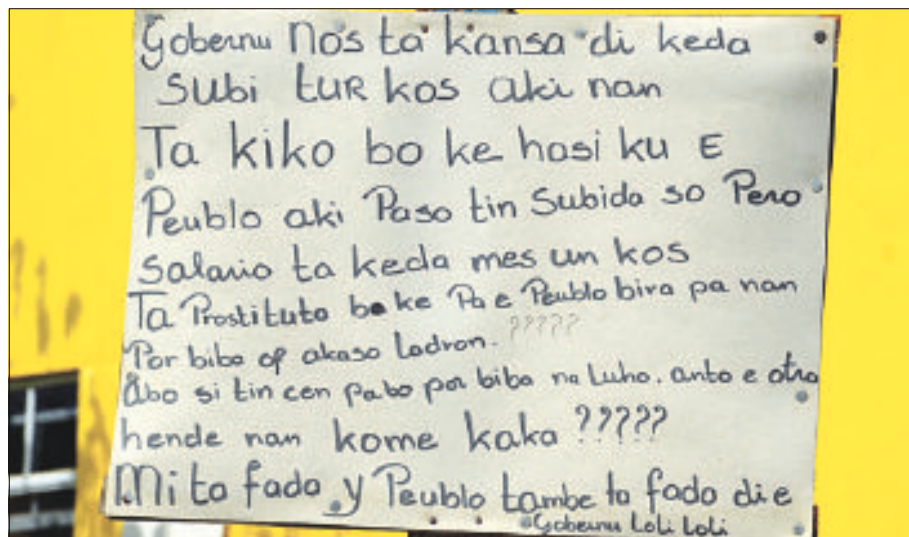 Gobernu Nos ta kansa di keda
subi tur kos aki nan
Ta kiko bo ke hasi ku E
Peublo aki Paso tin Subida so Pero
Salario ta keda mes un kos
Ta Prostituto bo ke Pa e Peublo bira pa nan
Por biba of akaso Ladron. ?????
Abo si tin cen pa bo por biba na Luho. anto e otro
hende nan kome kaka ?????
Mi ta fada y Peublo tambe ta fada di e
Gobernu Loli Loli